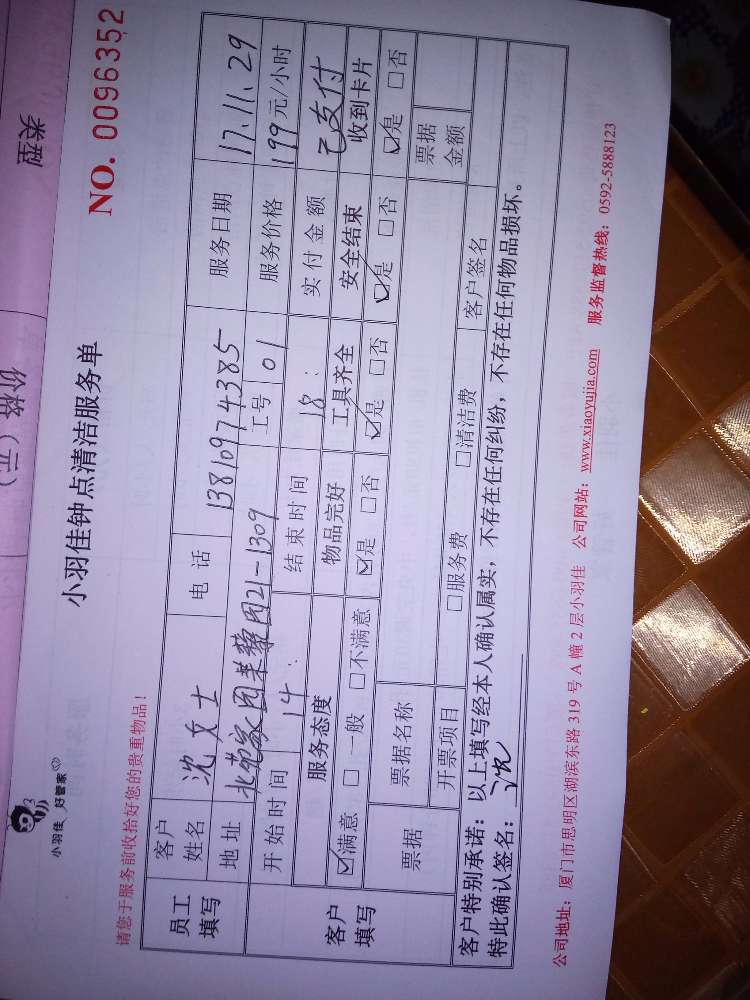 类型
价格（元）
小羽佳 好管家
小羽佳钟点清洁服务单
NO. 0096352
请您于服务前收拾好您的贵重物品！
员工填写 客户姓名 沈女士 电话 13810974385 服务日期 17.11.29
地址 北苑家园茉藜园21-1309 工号 01 服务价格 199元/小时
客户填写 开始时间 14： 结束时间 18： 实付金额 已支付
服务态度 物品完好 工具齐全 安全结束 收到卡片
☑满意 □一般 □不满意 ☑是 □否 ☑是 □否 ☑是 □否 ☑是 □否
票据 票据名称 票据金额
开票项目 □服务费 □清洁费 客户签名
客户特别承诺：以上填写经本人确认属实，不存在任何纠纷，不存在任何物品损坏。
特此确认签名：沈
公司地址：厦门市思明区湖滨东路 319 号 A 幢 2 层小羽佳 公司网站：www.xiaoyujia.com 服务监督热线：0592-5888123